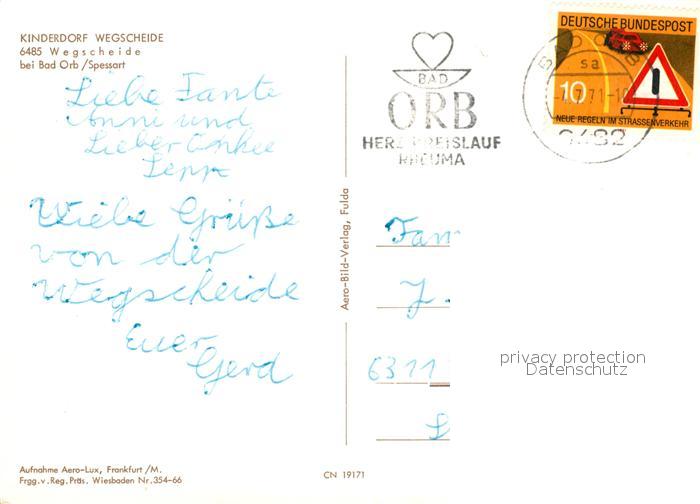 KINDERDORF WEGSCHEIDE
6485 Wegscheide
bei Bad Orb/Spessart
Liebe Tante
Anni und
Lieber Onkel
Sepp
Liebe Grüße
von der
Wegscheide
Euer
Gerd
Aufnahme Aero-Lux, Frankfurt/M.
Frgg.v.Reg.Präs. Wiesbaden Nr.354-66
Aero-Bild-Verlag, Fulda
CN 19171
BAD
ORB
HERZ KREISLAUF
RHEUMA
DEUTSCHE BUNDESPOST
10
NEUE REGELN IM STRASSENVERKEHR
BAD ORB
sa
Fam
J.
6311
privacy protection
Datenschutz